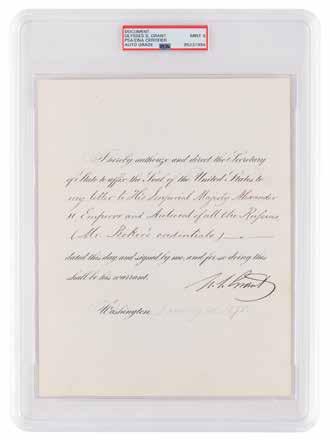 DOCUMENT
ULYSSES S. GRANT
PSA/DNA CERTIFIED
AUTO GRADE
MINT 9
I hereby authorize and direct the Secretary
of State to affix the Seal of the United States to
my letter to His Imperial Majesty Alexander
II Emperor and Autocrat of all the Russias
(Mr. Boker's credentials)
dated this day and signed by me, and for so doing this
shall be his warrant.
U.S. Grant
Washington, January